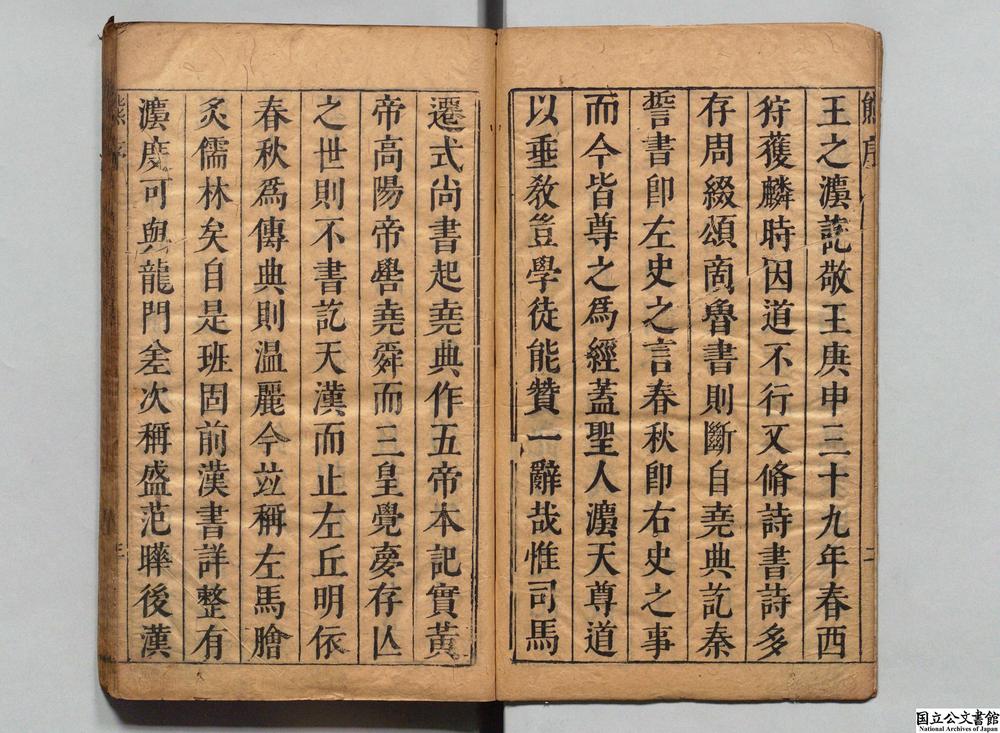 熊序
二
王之灋訖敬王庚申三十九年春西
狩獲麟時因道不行又脩詩書詩多
存周綴頌商魯書則斷自堯典訖秦
誓書卽左史之言春秋卽右史之事
而今皆尊之爲經蓋聖人灋天尊道
以垂敎豈學徒能贊一辭哉惟司馬
遷式尚書起堯典作五帝本記實黃
帝高陽帝嚳堯舜而三皇覺夢存亾
之世則不書訖天漢而止左丘明依
春秋爲傳典則温麗今竝稱左馬膾
炙儒林矣自是班固前漢書詳整有
灋度可與龍門差次稱盛范曄後漢
国立公文書館
National Archives of Japan